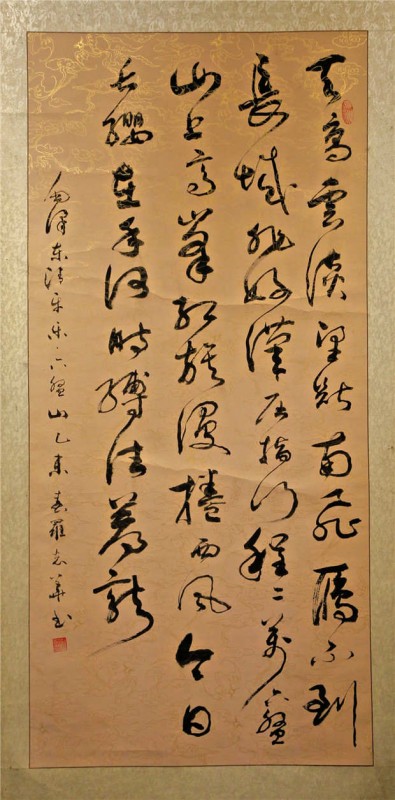 天高雲淡望斷南飛雁不到
長城非好漢屈指行程二萬六盤
山上高峯紅旗漫捲西風今日
長纓在手何時縛住蒼龍
毛澤东清平乐·六盤山乙未春羅志華书